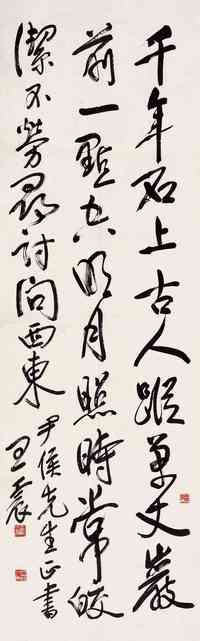 千年石上古人蹤萬丈巖
前一點空明月照時常皎
潔不勞尋討問西東
尹侯先生正書
王震